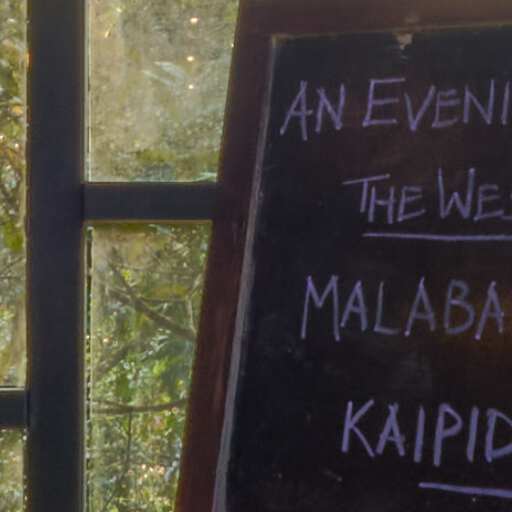 AN EVENI
THE WES
MALABA
KAIPID